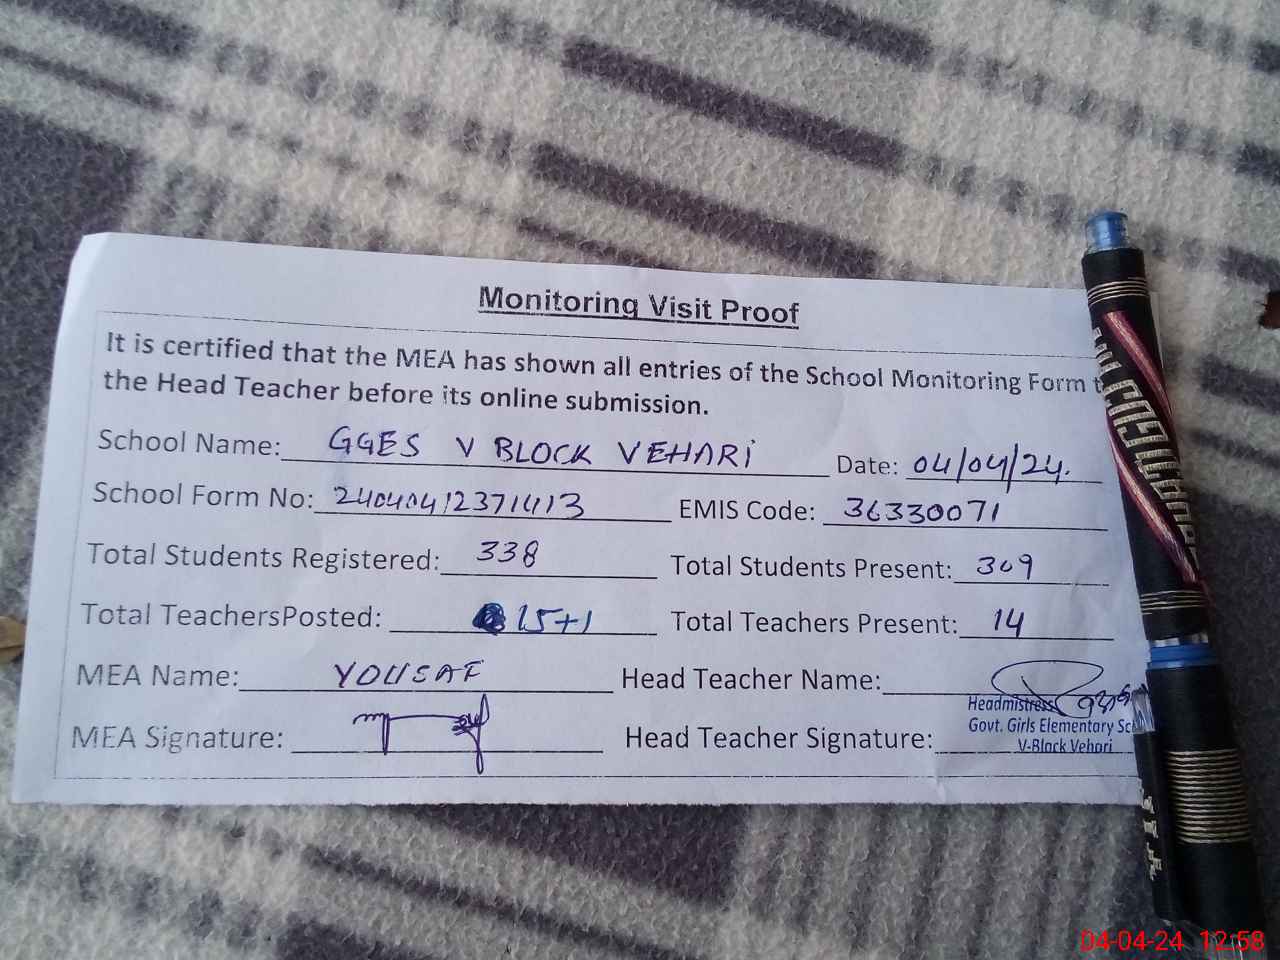 Monitoring Visit Proof
It is certified that the MEA has shown all entries of the School Monitoring Form
the Head Teacher before its online submission.
School Name: GGES V BLOCK VEHARI Date: 04/04/24.
School Form No: 24040412371413 EMIS Code: 36330071
Total Students Registered: 338 Total Students Present: 309
Total TeachersPosted: 15+1 Total Teachers Present: 14
MEA Name: YOUSAF Head Teacher Name:
MEA Signature: Head Teacher Signature:
Headmistress
Govt. Girls Elementary
V-Block Vehari
04-04-24 12:58